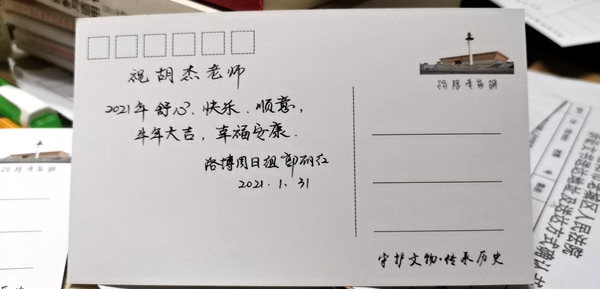 祝胡杰老师
2021年舒心、快乐、顺意，
牛年大吉，幸福安康.
洛博周日组 郭丽红
2021.1.31
洛阳博物馆
守护文物·传承历史
区人民法院